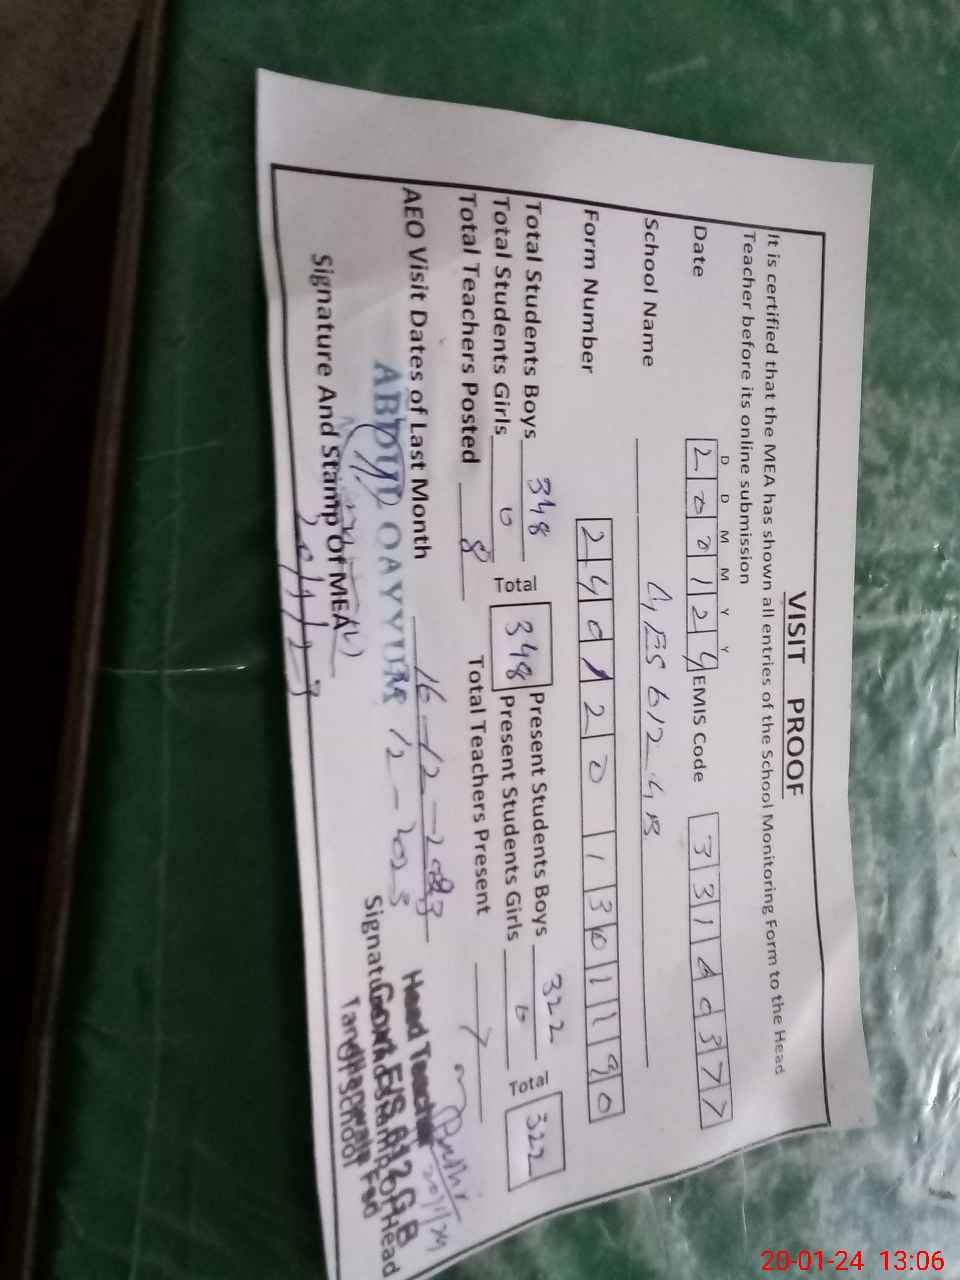 VISIT PROOF
It is certified that the MEA has shown all entries of the School Monitoring Form to the Head
Teacher before its online submission
D D M M Y Y
Date 200124 EMIS Code 33100377
School Name GES 612 GB
Form Number 24012013011190
Total Students Boys 348 Total 348 Present Students Boys 322 Total 322
Total Students Girls 0 Present Students Girls 0
Total Teachers Posted 8 Total Teachers Present 7
AEO Visit Dates of Last Month 16-12-2023
12-2023
ABDUL QAYYUM
Signature And Stamp Of MEA
Head Teacher
20/1/24
Govt E/S 612 G.B
Signature And Stamp Of Head
Of School
20-01-24 13:06